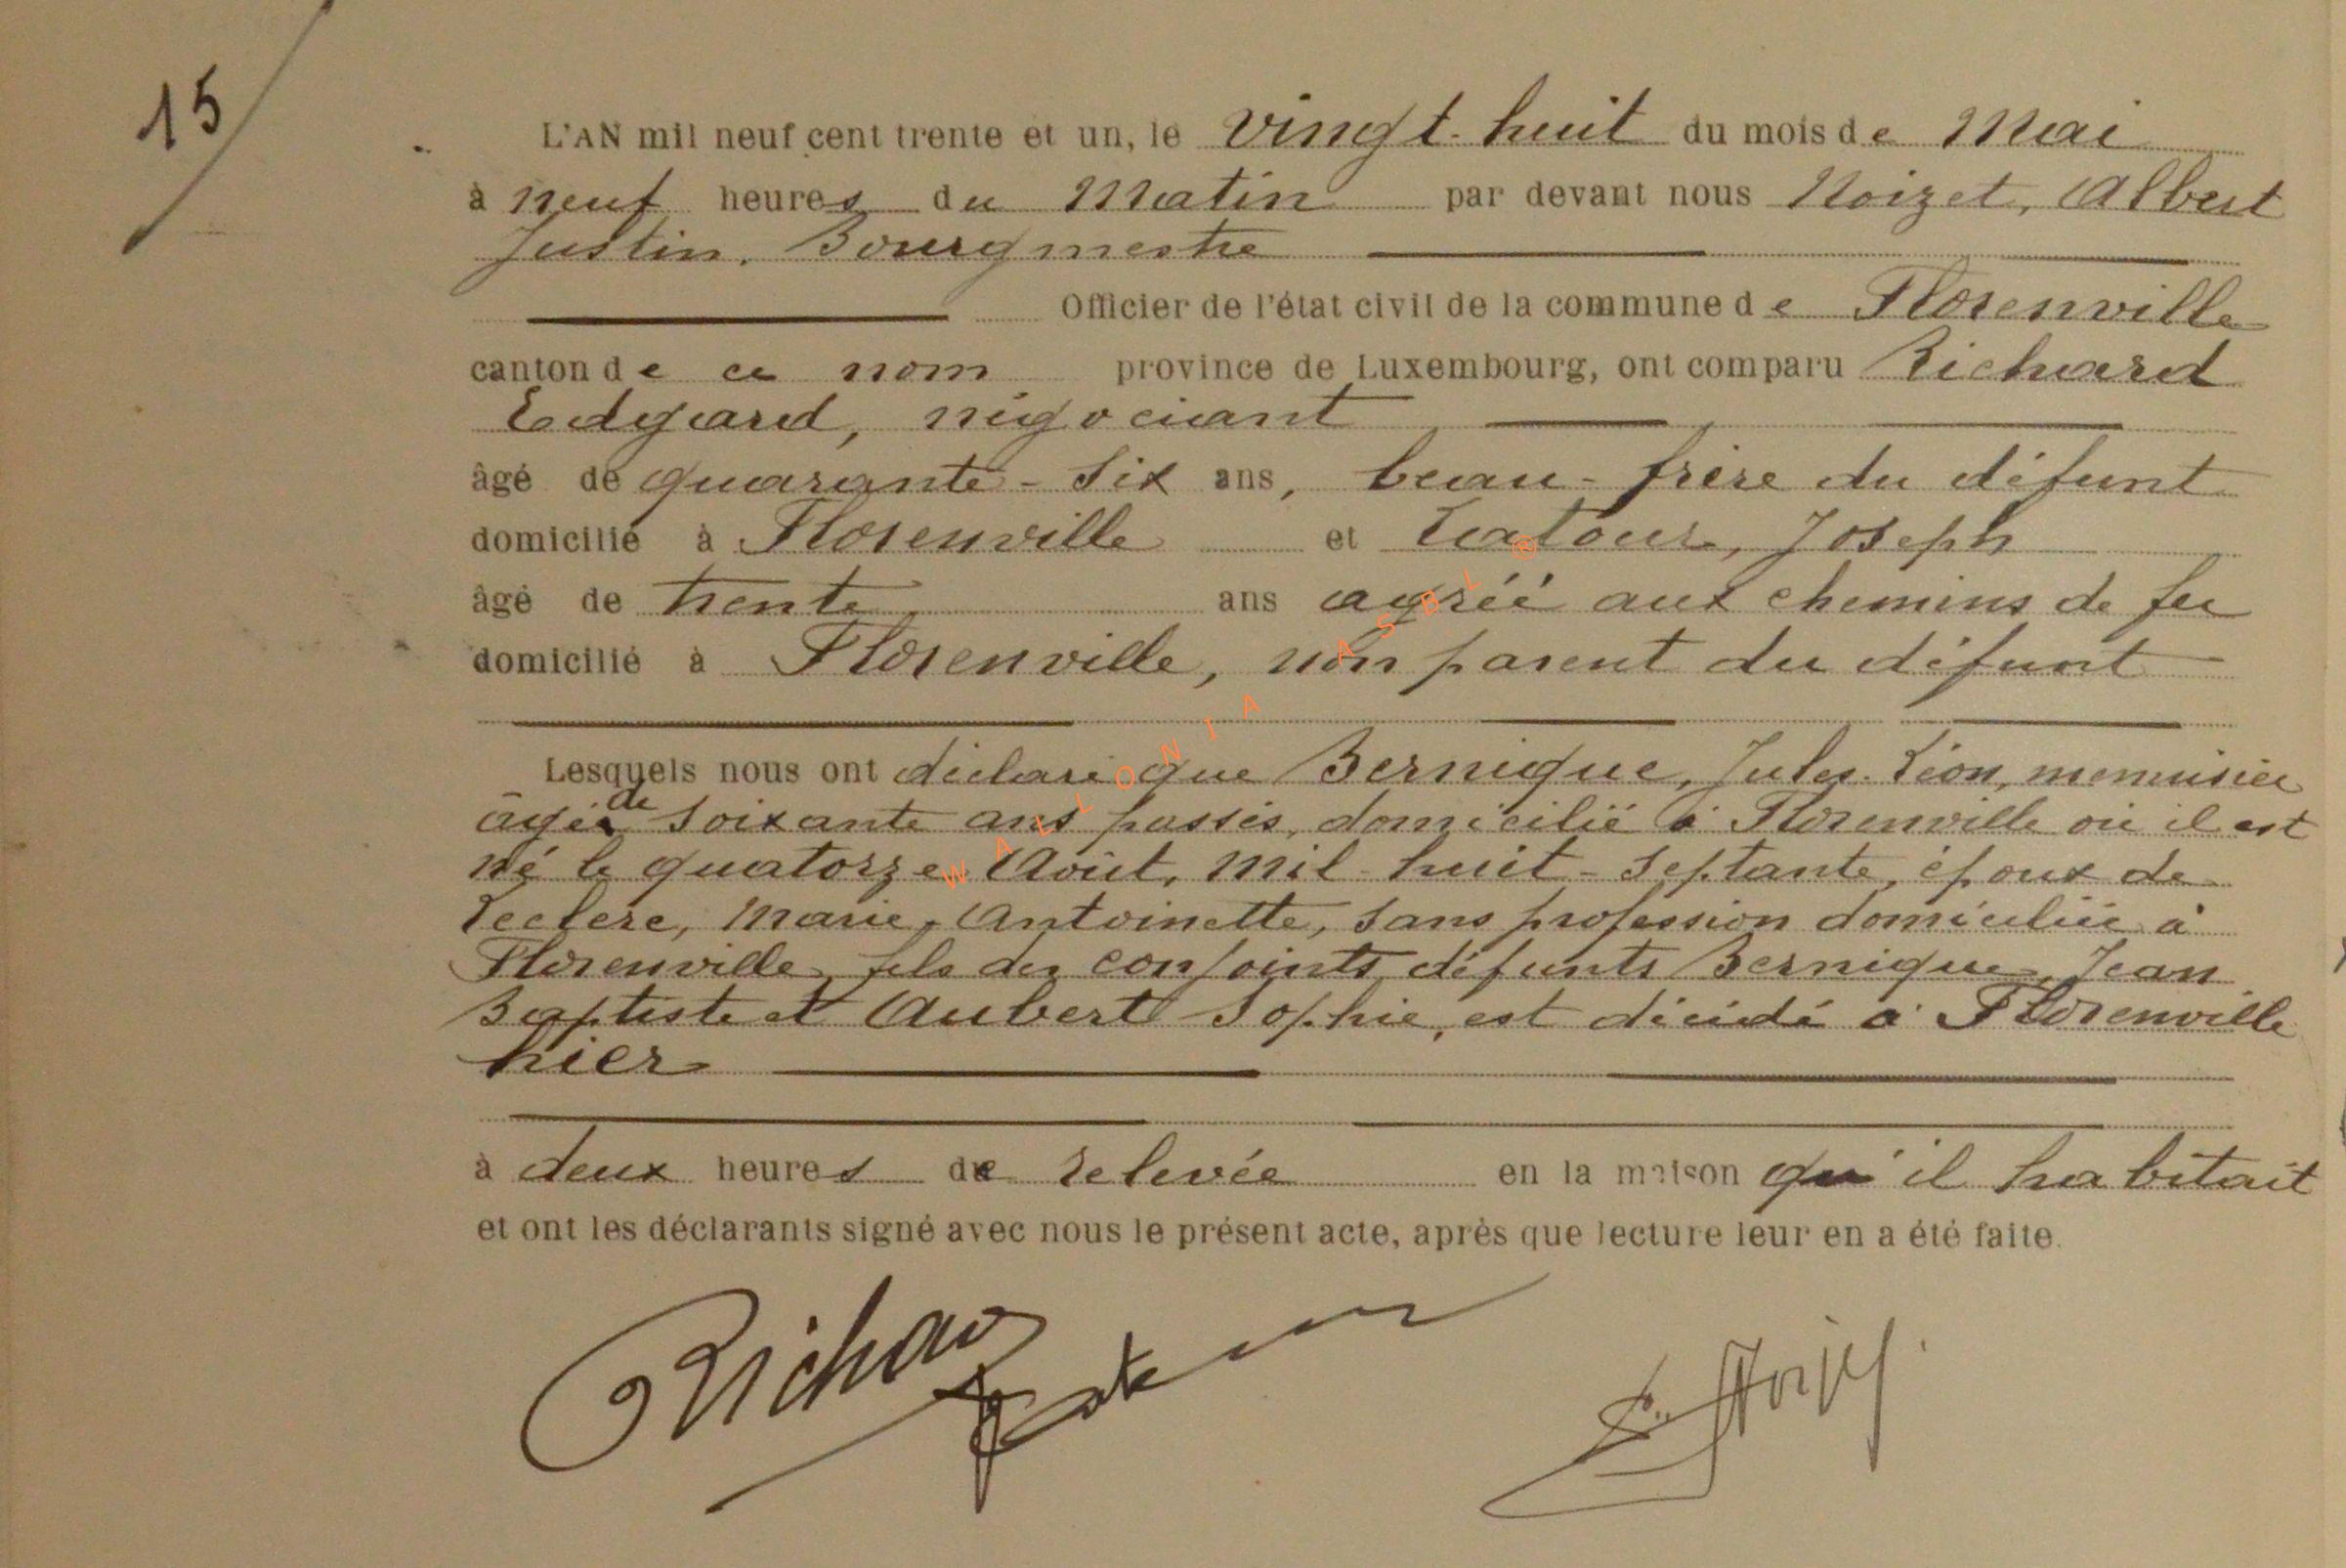 15
L'AN mil neuf cent trente et un, le vingt-huit du mois de Mai
à neuf heures du Matin par devant nous Noizet, Albert
Justin, Bourgmestre
Officier de l'état civil de la commune de Florenville
canton de ce nom province de Luxembourg, ont comparu Richard
Edgard, négociant
âgé de quarante-six ans, beau-frère du défunt
domicilié à Florenville et Latour, Joseph
âgé de trente ans agréé aux chemins de fer
domicilié à Florenville, non parent du défunt
Lesquels nous ont déclaré que Bernique, Jules-Léon, menuisier
âgé de soixante ans passés, domicilié à Florenville où il est
né le quatorze Août, mil-huit-septante, époux de
Leclere, Marie, Antoinette, sans profession domiciliée à
Florenville, fils des conjoints défunts Bernique, Jean
Baptiste et Aubert Sophie, est décédé à Florenville
hier
à deux heures de relevée en la maison qu'il habitait
et ont les déclarants signé avec nous le présent acte, après que lecture leur en a été faite.
Richard
WALLONIA ASBL ©